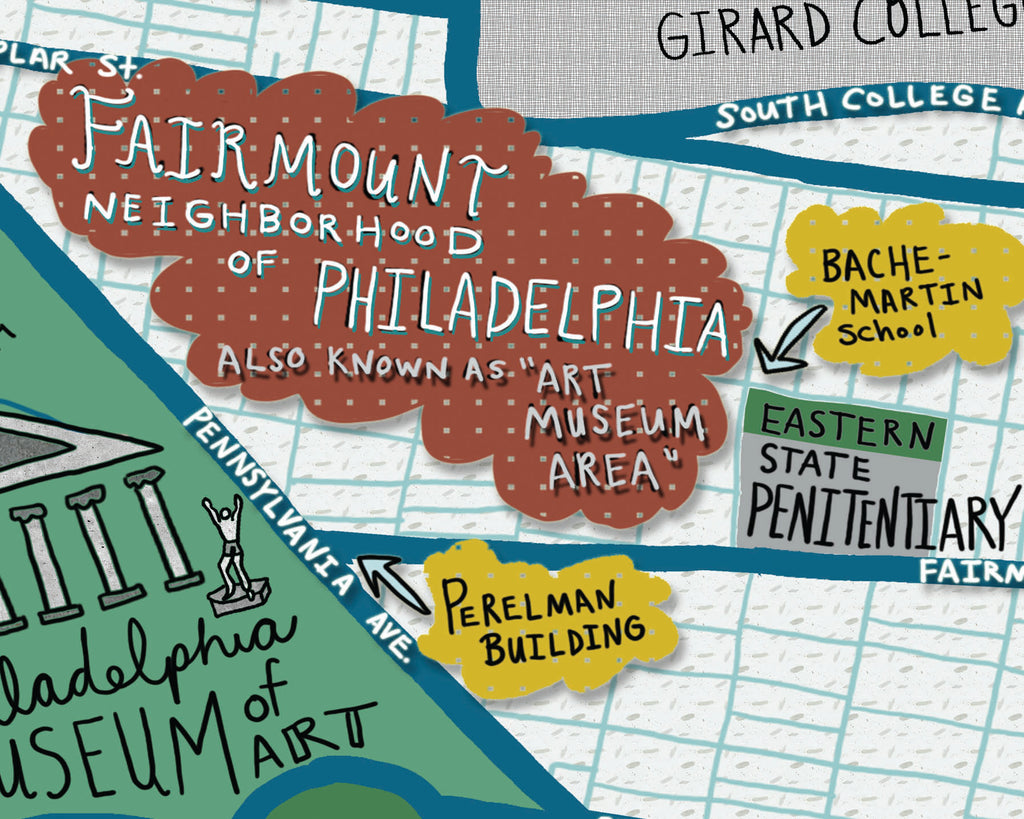 GIRARD COLLEG
PLAR St.
SOUTH COLLEGE A
FAIRMOUNT
NEIGHBORHOOD
OF PHILADELPHIA
ALSO KNOWN AS "ART
MUSEUM
AREA"
BACHE-
MARTIN
School
EASTERN
STATE
PENITENTIARY
PENNSYLVANIA AVE.
FAIRM
PERELMAN
BUILDING
ladelphia
USEUM of
ART